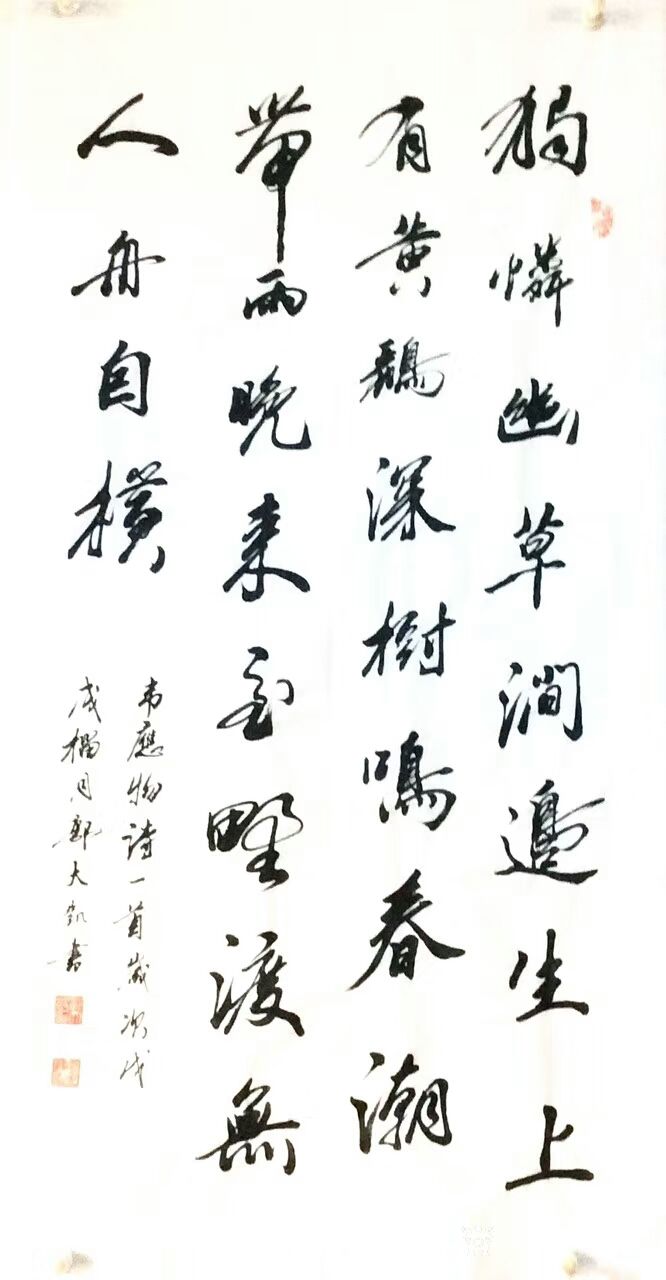 獨憐幽草澗邊生上
有黄鸝深樹鳴春潮
帶雨晚来急野渡無
人舟自橫
韋應物詩一首歲次戊
戌榴月鄭大凱書